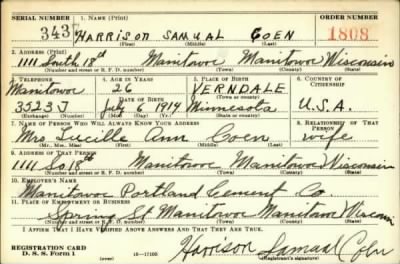 SERIAL NUMBER 1. NAME (Print) ORDER NUMBER
343 HARRISON SAMUAL COEN 1808
(First) (Middle) (Last)
2. ADDRESS (Print)
1111 South 18th Manitowoc Manitowoc Wisconsin
(Number and street or R. F. D. number) (Town) (County) (State)
3. TELEPHONE 4. AGE IN YEARS 5. PLACE OF BIRTH 6. COUNTRY OF CITIZENSHIP
Manitowoc 26 VERNDALE
DATE OF BIRTH (Town or county)
3523J July 1914 Minnesota U.S.A.
(Exchange) (Number) (Mo.) (Day) (Yr.) (State or country)
7. NAME OF PERSON WHO WILL ALWAYS KNOW YOUR ADDRESS 8. RELATIONSHIP OF THAT PERSON
Mrs Lucille Ann Coen wife
(Mr., Mrs., Miss) (First) (Middle) (Last)
9. ADDRESS OF THAT PERSON
1111 So 18th Manitowoc Manitowoc Wisconsin
(Number and street or R. F. D. number) (Town) (County) (State)
10. EMPLOYER'S NAME
Manitowoc Portland Cement Co
11. PLACE OF EMPLOYMENT OR BUSINESS
Spring St Manitowoc Manitowoc Wisconsin
(Number and street or R. F. D. number) (Town) (County) (State)
I AFFIRM THAT I HAVE VERIFIED ABOVE ANSWERS AND THAT THEY ARE TRUE.
REGISTRATION CARD
D. S. S. Form 1 (over) 16-17105 Harrison Samual Coen
(Registrant's signature)